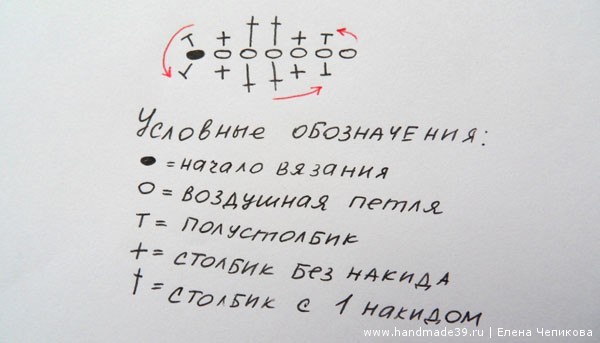 Условные обозначения:
● = начало вязания
○ = воздушная петля
т = полустолбик
+ = столбик без накида
† = столбик с 1 накидом
www.handmade39.ru | Елена Чепикова